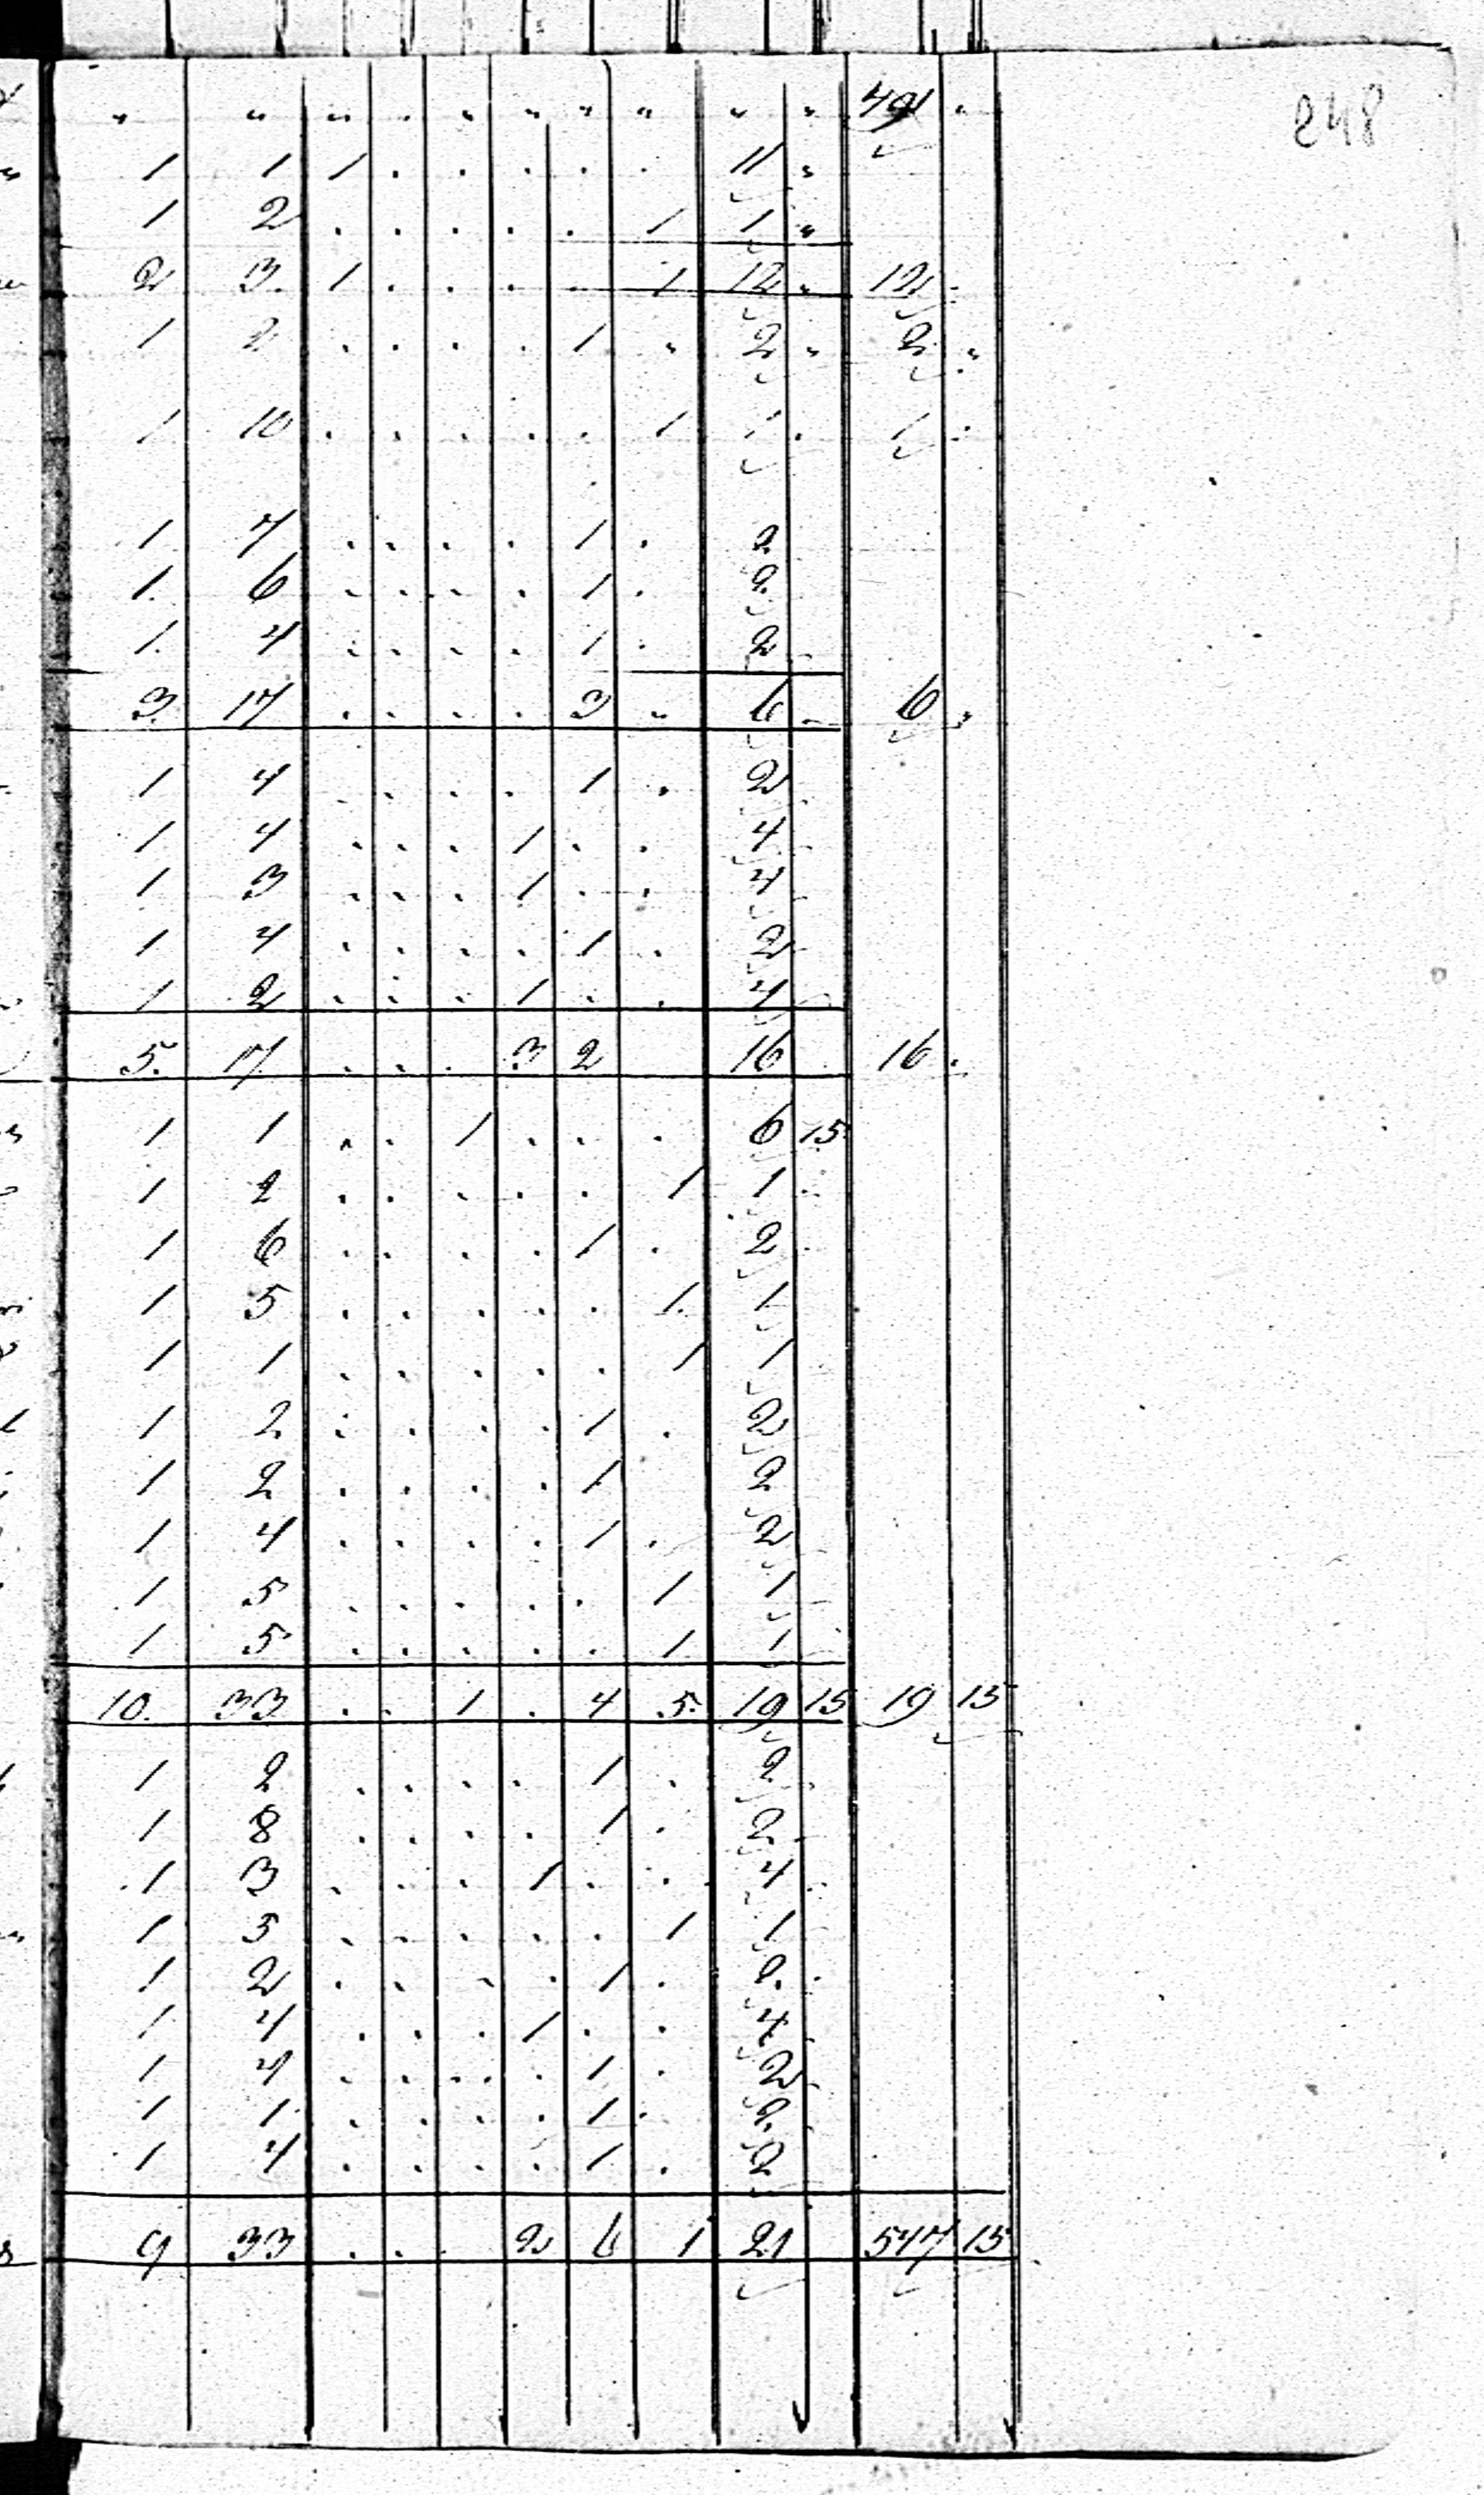 " " " . " " " " " " 491 "
248
1 1 1 . . . . . 11 "
1 2 . . . . . 1 1 "
2 3. 1 . . . . 1 12 . 12 .
1 2 . . . . 1 " 2 " 2 "
1 10 . . . . . 1 1 . 1 .
1. 7 . . . . 1 . 2.
1. 6 . . . . 1 . 2.
1. 4 . . . . 1 . 2
3. 17 . . . . 3 " 6 . 6 .
1 4 . . . . 1 . 2
1 4 . . . 1 . . 4
1 3 . . . 1 . . 4
1 4 . . . . 1 . 2
1 2 . . . 1 . . 4
5. 17 . . . 3 2 16 16 .
1 1 . . 1 . . . 6 15
1 2 . . . . . 1 1
1 6 . . . . 1 . 2
1 5 . . . . . 1. 1
1 1 . . . . . 1 1
1 2 . . . . 1 . 2
1 2 . . . . 1 2
1 4 . . . . 1 . 2
1 5 . . . . . 1 1
1 5 . . . . . 1 1
10. 33 . . 1 . 4 5. 19 15 19 15
1 2 . . . . 1 . 2
1 8 . . . . 1 . 2.
1 3 . . . 1 . . 4
1 5 . . . . . 1 1
1 2 . . . . 1 . 2.
1 4 . . . 1 . . 4
1 4 . . . . 1 . 2
1 1 . . . . 1 . 2.
1 4 . . . . 1 . 2
9 33 . . . 2 6 1 21 547 15